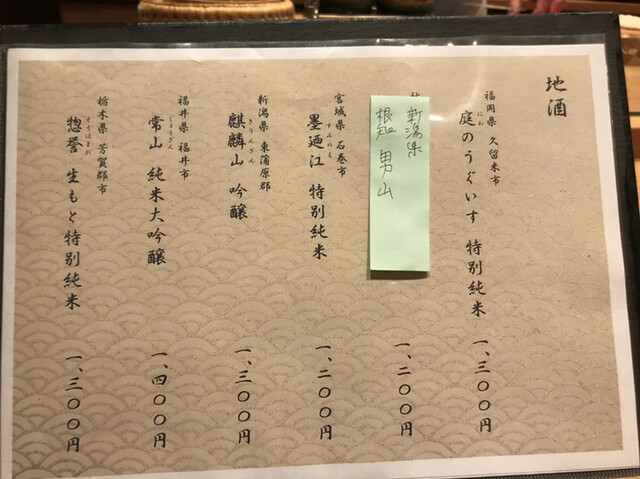 地酒
福岡県 久留米市
庭のうぐいす 特別純米 一、三〇〇円
にわ
新潟県
根知 男山
一、二〇〇円
宮城県 石巻市
墨廼江 特別純米 一、二〇〇円
すみのえ
新潟県 東蒲原郡
麒麟山 吟醸 一、三〇〇円
きりんざん
福井県 福井市
常山 純米大吟醸 一、四〇〇円
じょうざん
栃木県 芳賀郡市
惣誉 生もと特別純米 一、三〇〇円
そうほまれ